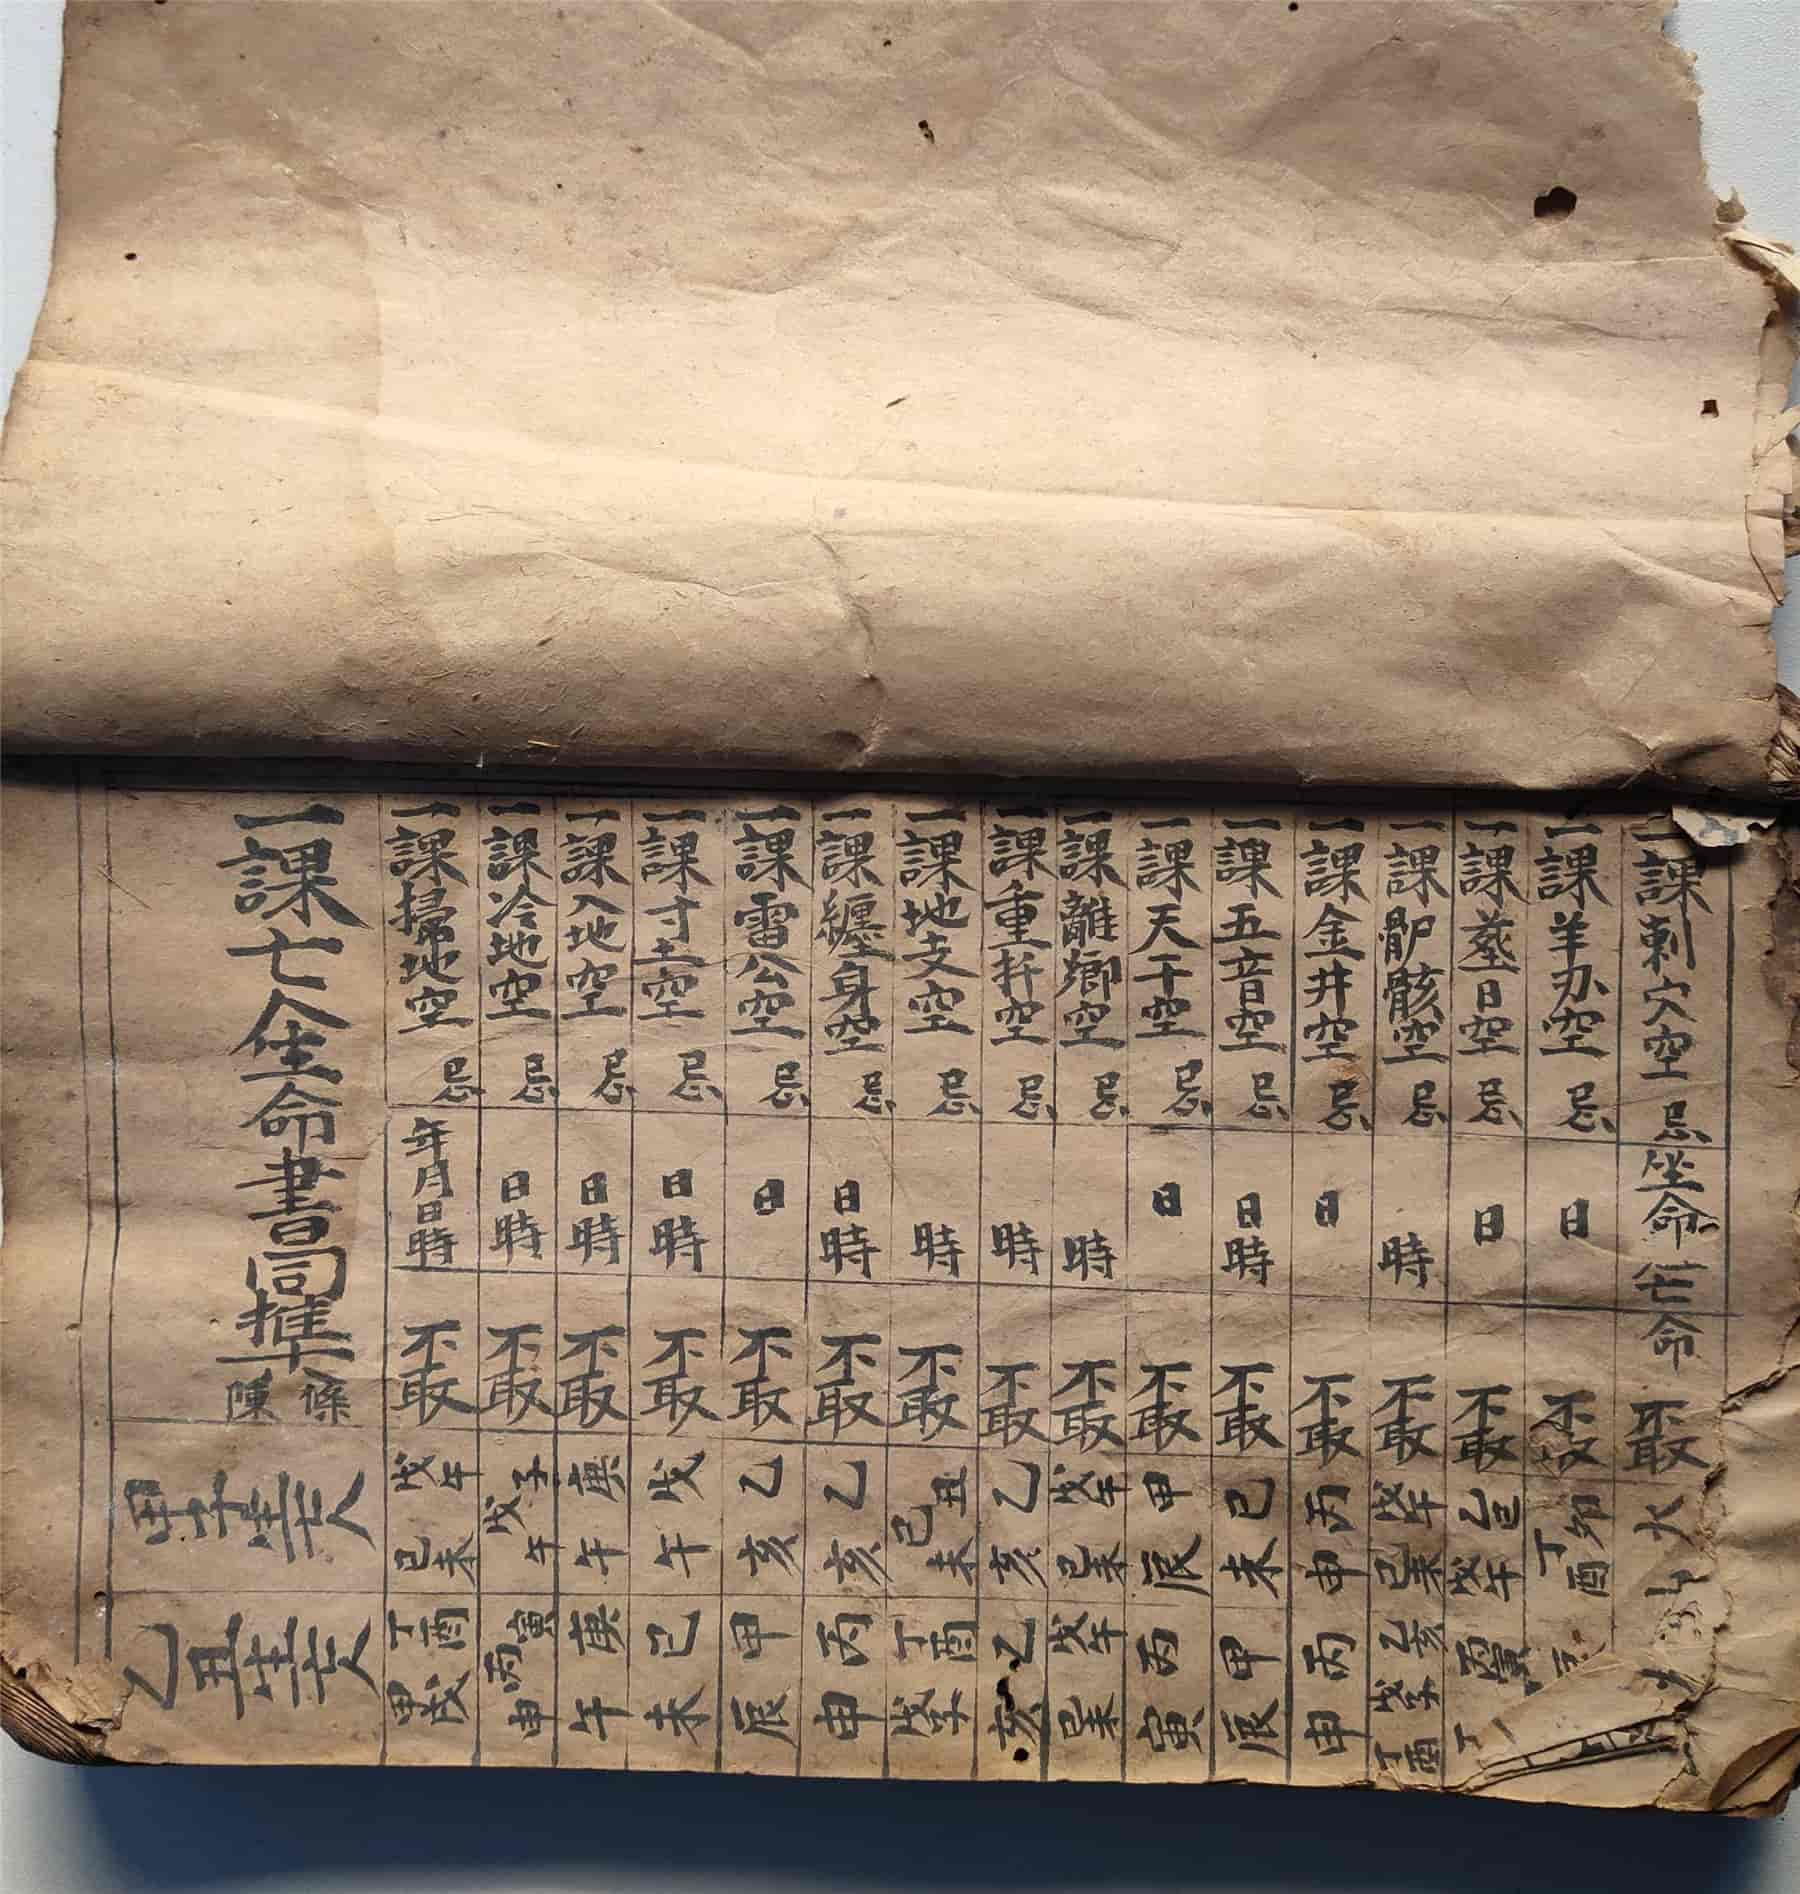 一課刺穴空忌坐命亡命不取火
一課羊刃空忌日不取卯丁酉
一課葬日空忌日不取乙巳戊午丙寅丁
一課骷骸空忌時不取戊午己未乙亥戊子丁酉
一課金井空忌日不取丙申丙申
一課五音空忌日時不取己未甲辰
一課天干空忌日不取甲辰丙寅
一課離鄉空忌時不取戊午己未戊午己未
一課重拆空忌時不取乙亥乙亥
一課地支空忌時不取丑己未丁酉戊子
一課纏身空忌日時不取乙亥丙申
一課雷公空忌日不取乙亥甲辰
一課寸土空忌日時不取戊午己未
一課入地空忌日時不取庚午庚午
一課冷地空忌日時不取子戊午寅丙申
一課掃地空忌年月日時不取戊午己未丁酉甲戌
一課亡人生命書同推條陳甲子生亡人乙丑生亡人